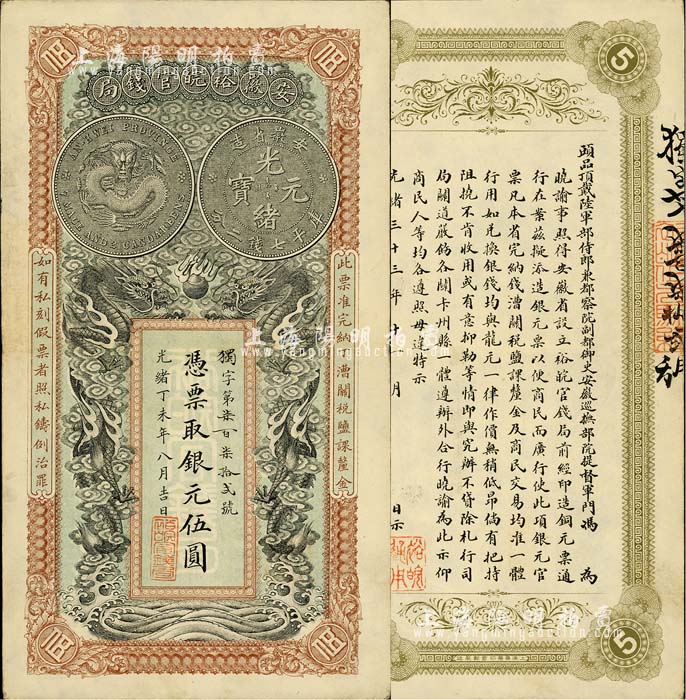 上海陽明拍賣
www.yangmingauction.com
安徽裕皖官錢局
AN-HWEI PROVINCE
安徽省造
光緒元寶
庫平七錢二分
此票准完納漕關稅鹽課釐金
如有私刻假票者照私鑄例治罪
獨字第柒百柒拾弍號
憑票取銀元伍圓
光緒丁未年八月吉日
伍
伍
伍
伍
5
5
頭品頂戴陸軍部侍郎兼都察院副都御史安徽巡撫部院提督軍門馮 為
曉諭事照得安徽省設立裕皖官錢局前經印造銅元票通
行在案茲擬添造銀元票以便商民而廣行使此項銀元官
票凡本省完納錢漕關稅鹽課釐金及商民交易均准一體
行用如兌換銀錢均與龍元一律作價無稍低昂倘有把持
阻撓不肯收用或有意抑勒等情即與究辦不貸除札行司
局關道嚴飭各關卡州縣一體遵辦外合行曉諭為此示仰
商民人等均各遵照毋違特示
光緒三十三年十 月 日示
上海陽明拍賣
www.yangmingauction.com
上海陽明拍賣
www.yangmingauction.com